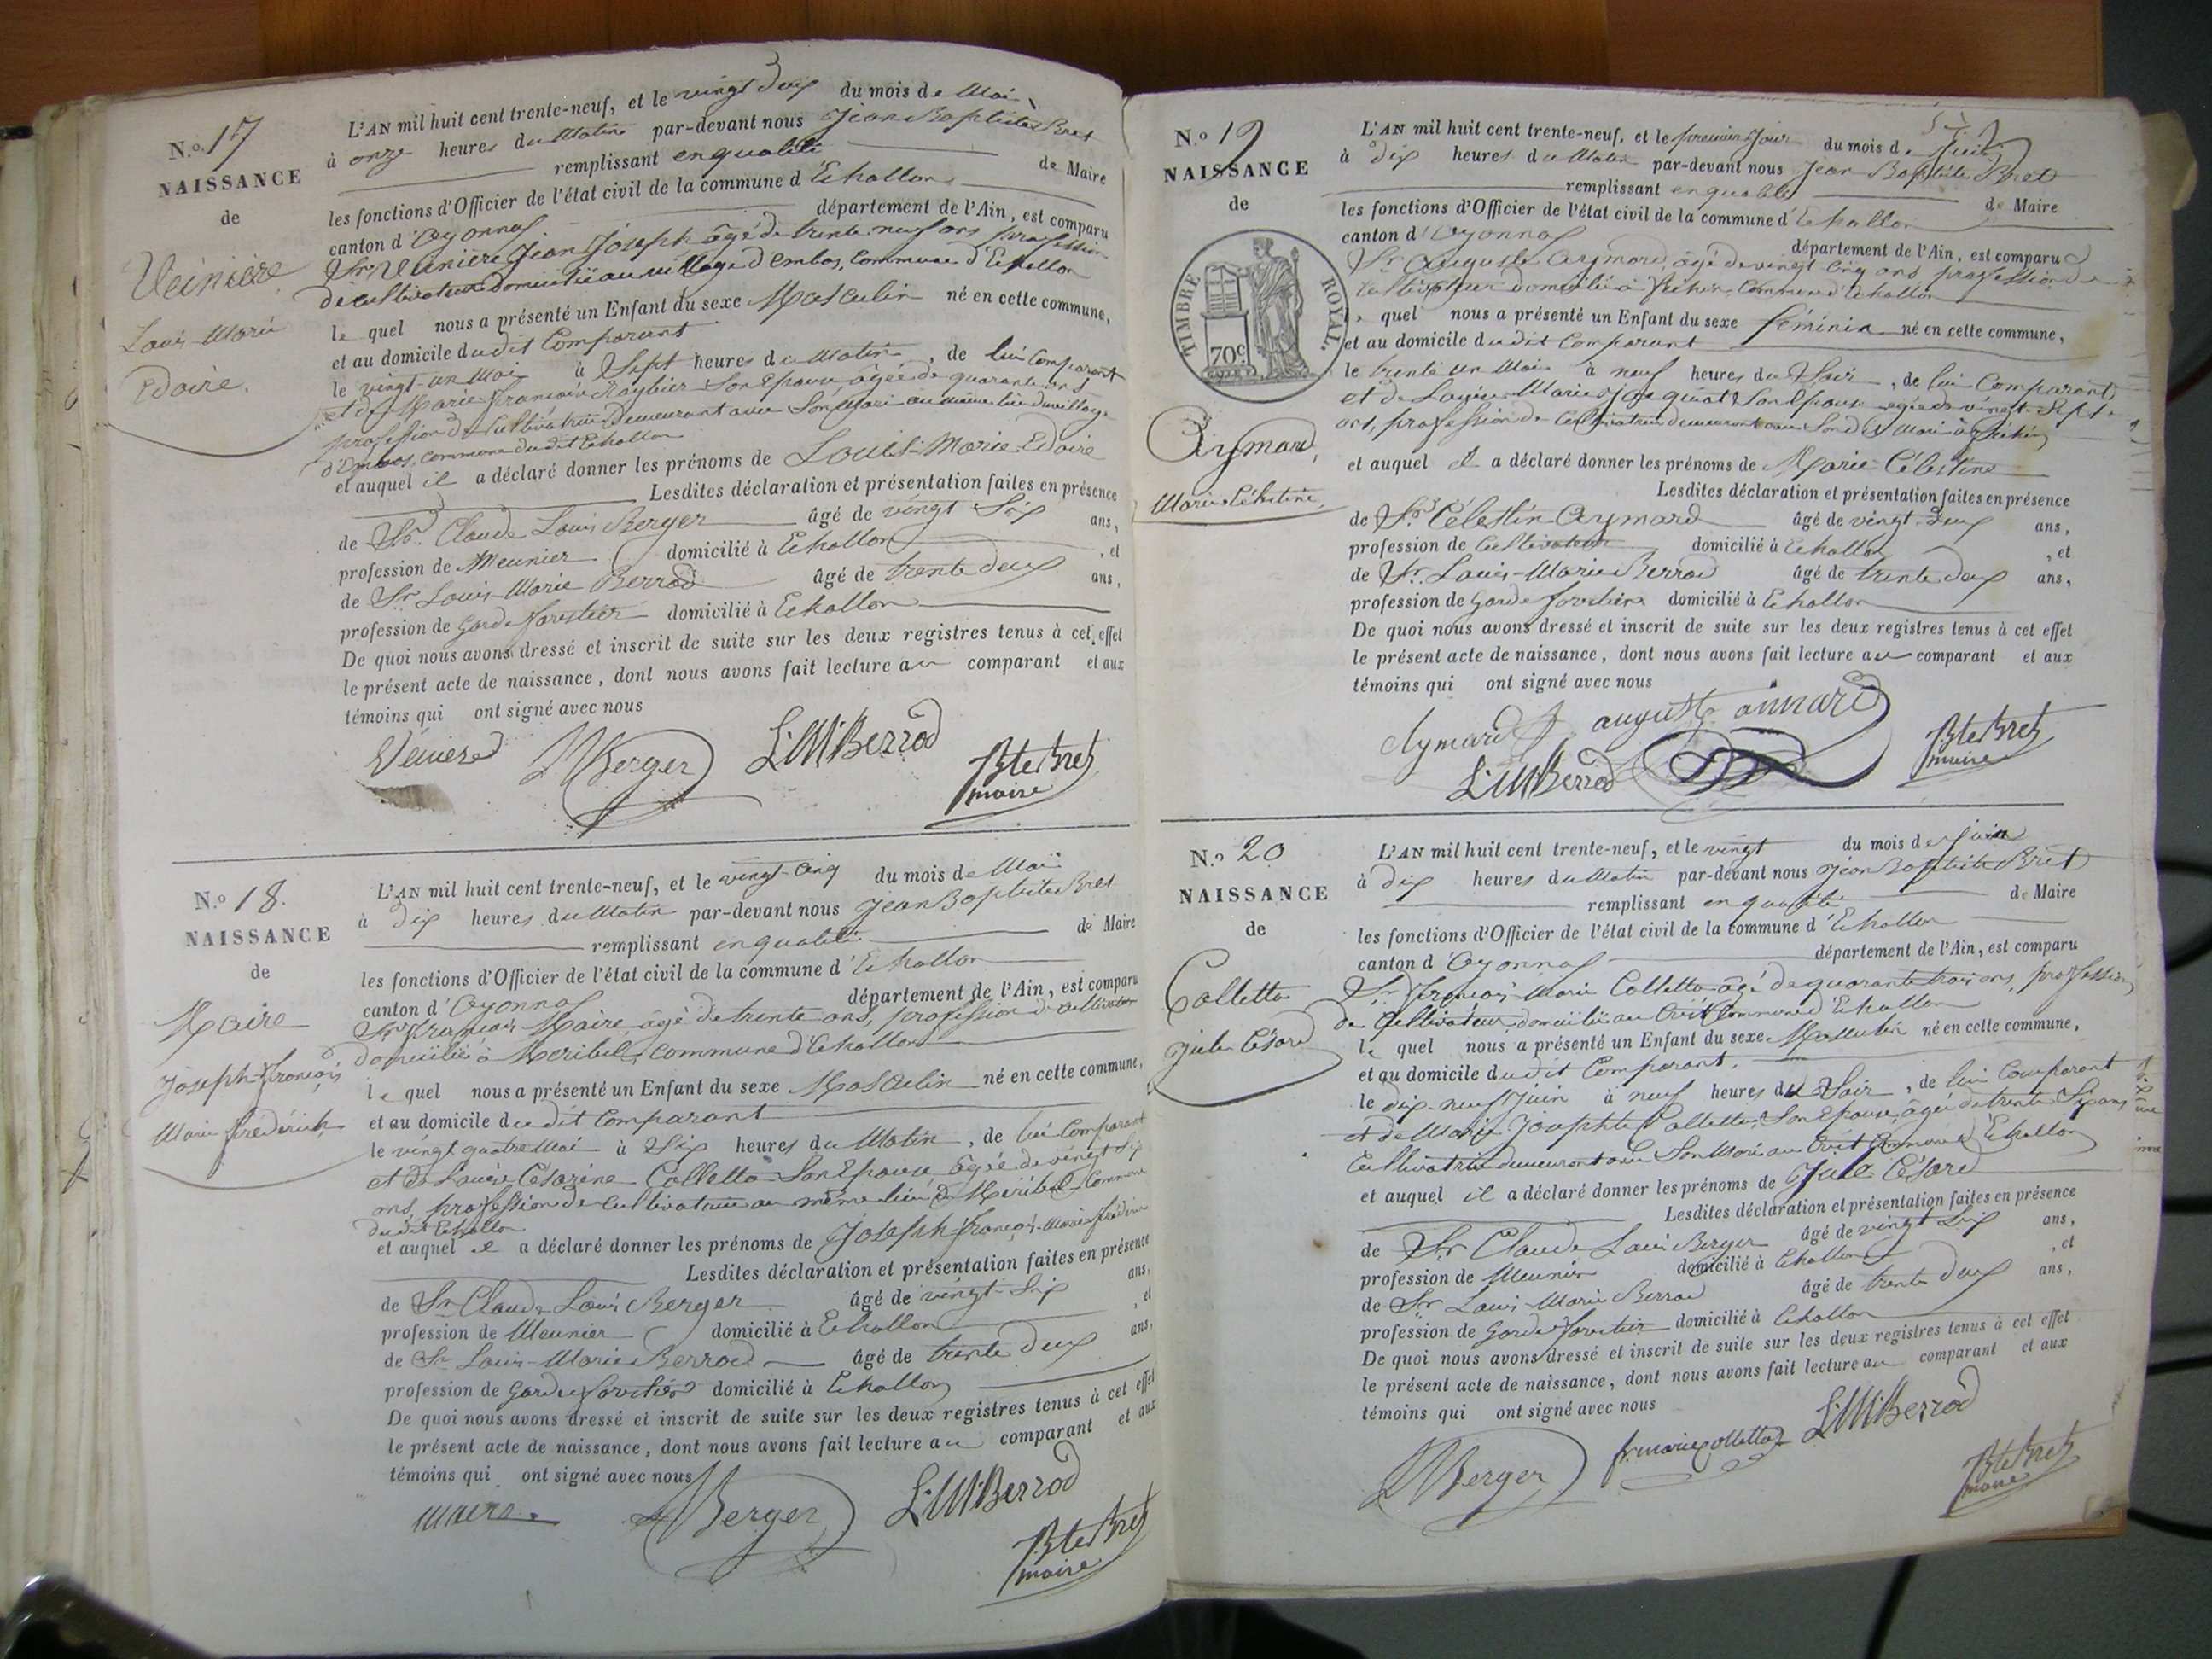 N.o 17
NAISSANCE
de
Veinière
Louis-Marie
Edoire.
L'AN mil huit cent trente-neuf, et le vingt deux du mois de Mai
à onze heures du Matin par-devant nous Jean Baptiste Bret
remplissant en qualité de Maire
les fonctions d'Officier de l'état civil de la commune d'Echallon
canton d'Oyonnax département de l'Ain, est comparu
Sr. Veinière Jean Joseph âgé de trente neuf ans profession
de cultivateur domicilié au village d'Embos, Commune d'Echallon
le quel nous a présenté un Enfant du sexe Masculin né en cette commune,
et au domicile dudit Comparant
le vingt-un Mai à Sept heures du Matin, de lui Comparant
et de Marie Françoise Son Epouse âgée de quarante ans
profession de Cultivatrice Demeurant avec Son Mari au même lieu du village
d'Embos, commune dudit Echallon
et auquel il a déclaré donner les prénoms de Louis-Marie-Edoire
Lesdites déclaration et présentation faites en présence
de Sr. Claude Louis Berger âgé de vingt Six ans,
profession de Meunier domicilié à Echallon, et
de Sr Louis Marie Berrod âgé de trente deux ans,
profession de Garde forestier domicilié à Echallon
De quoi nous avons dressé et inscrit de suite sur les deux registres tenus à cet effet
le présent acte de naissance, dont nous avons fait lecture au comparant et aux
témoins qui ont signé avec nous
Berger L:M:Berrod
Bte Bret
maire
N.o 18.
NAISSANCE
de
Maire
Joseph-François
Marie frédérick
L'AN mil huit cent trente-neuf, et le vingt-Cinq du mois de Mai
à Dix heures du Matin par-devant nous Jean Baptiste Bret
remplissant en qualité de Maire
les fonctions d'Officier de l'état civil de la commune d'Echallon
canton d'Oyonnax département de l'Ain, est comparu
Sr François Maire âgé de trente ans, profession de cultivateur
domicilié à Meribel, commune d'Echallon
le quel nous a présenté un Enfant du sexe Masculin né en cette commune,
et au domicile dudit Comparant
le vingt quatre Mai à Six heures du Matin, de lui Comparant
et de Louise Césarine Colletta Son Epouse âgée de vingt Six
ans, profession de Cultivatrice au même lieu de Meribel Commune
dudit Echallon
et auquel il a déclaré donner les prénoms de Joseph-françois-Marie
Lesdites déclaration et présentation faites en présence
de Sr Claude Louis Berger âgé de vingt-Six ans,
profession de Meunier domicilié à Echallon, et
de Sr Louis-Marie Berrod âgé de trente deux ans,
profession de Garde forestier domicilié à Echallon
De quoi nous avons dressé et inscrit de suite sur les deux registres tenus à cet effet
le présent acte de naissance, dont nous avons fait lecture au comparant et aux
témoins qui ont signé avec nous
maire Berger L:M:Berrod
Bte Bret
maire
N.o 19
NAISSANCE
de
TIMBRE ROYAL.
70c.
Aymard,
Marie Célestine
L'AN mil huit cent trente-neuf, et le premier Jour du mois de Juin
à dix heures du Matin par-devant nous Jean Baptiste Bret
remplissant en qualité de Maire
les fonctions d'Officier de l'état civil de la commune d'Echallon
canton d'Oyonnax département de l'Ain, est comparu
Sr Auguste Aymard, âgé de vingt Cinq ans profession de
Cultivateur domicilié à Commune d'Echallon
le quel nous a présenté un Enfant du sexe féminin né en cette commune,
et au domicile dudit Comparant
le trente un Mai à neuf heures du Soir, de lui Comparant
et de Louise Marie Jacquiot Son Epouse agée de vingt Sept
ans, profession de Cultivatrice demeurant avec Son dit Mari à
et auquel il a déclaré donner les prénoms de Marie Célestine
Lesdites déclaration et présentation faites en présence
de Sr Célestin Aymard âgé de vingt-deux ans,
profession de Cultivateur domicilié à Echallon, et
de Sr. Louis-Marie Berrod âgé de trente deux ans,
profession de Garde forestier domicilié à Echallon
De quoi nous avons dressé et inscrit de suite sur les deux registres tenus à cet effet
le présent acte de naissance, dont nous avons fait lecture au comparant et aux
témoins qui ont signé avec nous
Aymard auguste aimard
L:M:Berrod Bte Bret
maire
N.o 20
NAISSANCE
de
Colletta
Jules César
L'AN mil huit cent trente-neuf, et le vingt du mois de Juin
à dix heures du Matin par-devant nous Jean Baptiste Bret
remplissant en qualité de Maire
les fonctions d'Officier de l'état civil de la commune d'Echallon
canton d'Oyonnax département de l'Ain, est comparu
Sr François Marie Colletta âgé de quarante trois ans, profession
de Cultivateur, domicilié au Crêt Commune d'Echallon
le quel nous a présenté un Enfant du sexe Masculin né en cette commune,
et au domicile dudit Comparant.
le dix-neuf Juin à neuf heures du Soir, de lui Comparant
et de Marie Josephte Colletta, Son Epouse, âgée de trente Six ans
Cultivatrice demeurant avec Son Mari au Crêt Commune d'Echallon
et auquel il a déclaré donner les prénoms de Jule César
Lesdites déclaration et présentation faites en présence
de Sr Claude Louis Berger âgé de vingt Six ans,
profession de Meunier domicilié à Echallon, et
de Sr Louis-Marie Berrod âgé de trente deux ans,
profession de Garde forestier domicilié à Echallon
De quoi nous avons dressé et inscrit de suite sur les deux registres tenus à cet effet
le présent acte de naissance, dont nous avons fait lecture au comparant et aux
témoins qui ont signé avec nous
Berger fr. marie colletta L:M:Berrod
Bte Bret
maire